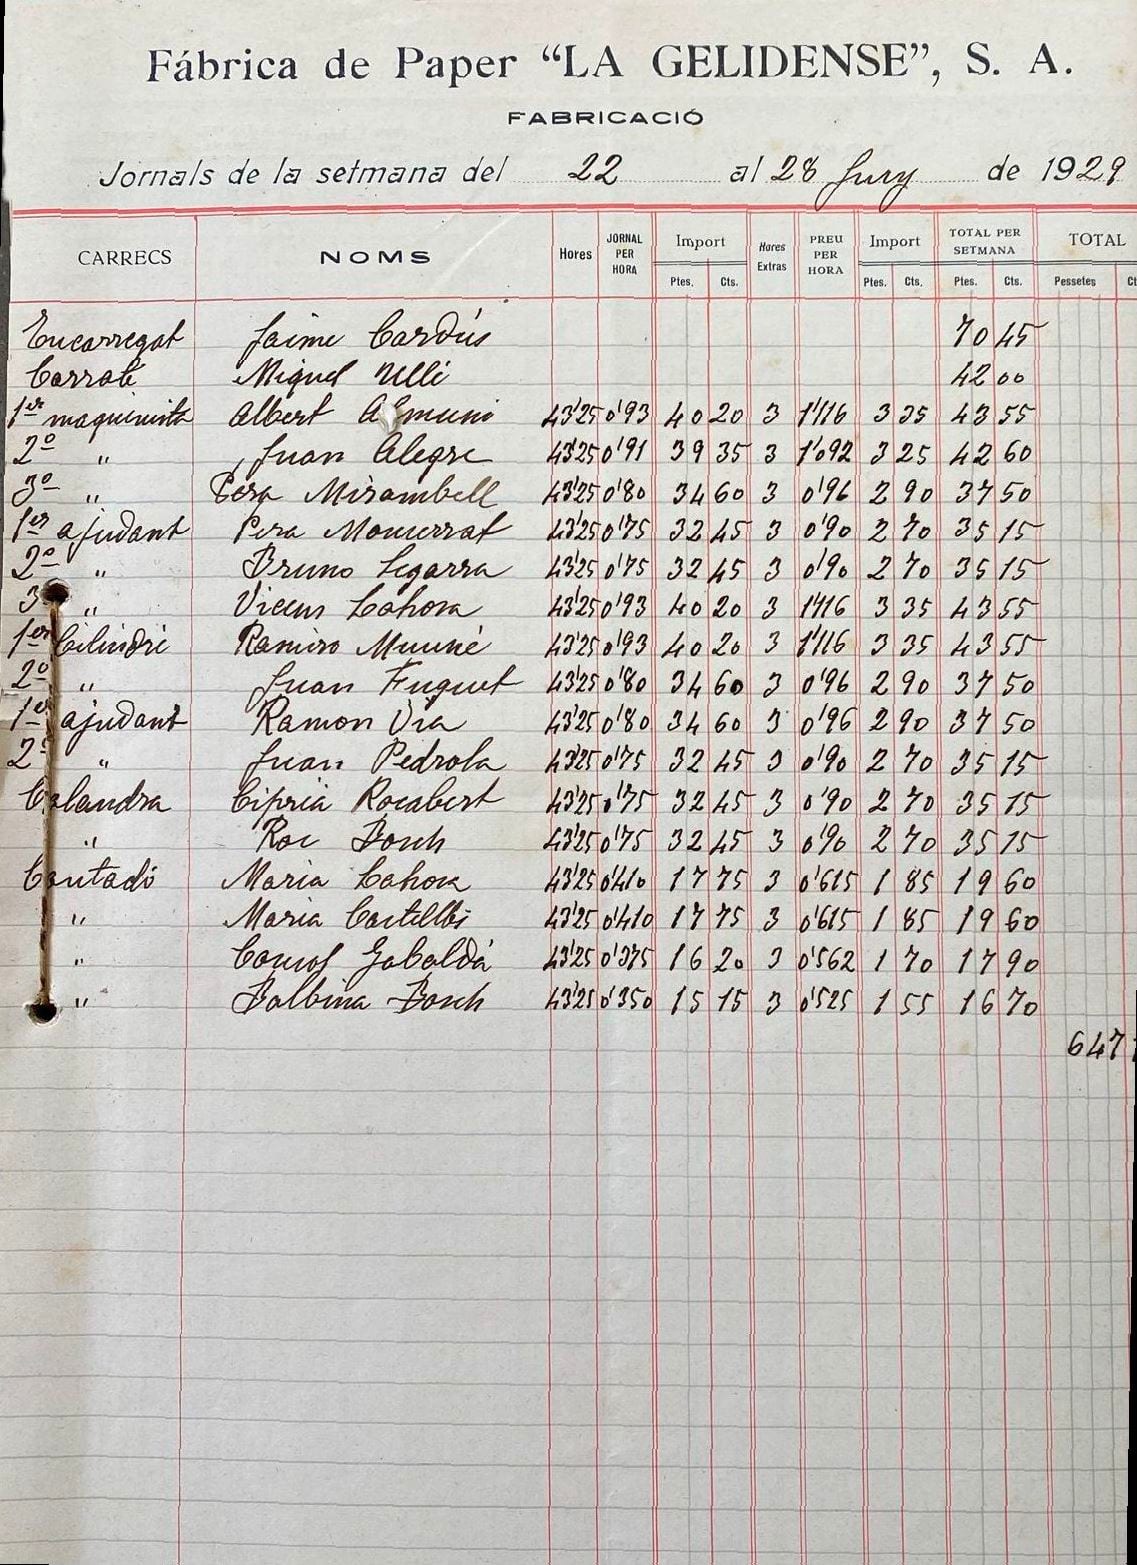 Fábrica de Paper “LA GELIDENSE”, S. A.
FABRICACIÓ
Jornals de la setmana del 22 al 28 Juny de 1929
CARRECS NOMS Hores JORNAL PER HORA Import Hores Extras PREU PER HORA Import TOTAL PER SETMANA TOTAL
Ptes. Cts. Ptes. Cts. Ptes. Cts. Pessetes
Encarregat Jaime Cardús 70 45
Corraté Miquel Ullé 42 00
1er maquinista Albert 43'25 0'93 40 20 3 1'116 3 35 43 55
2º " Juan Alegre 43'25 0'91 39 35 3 1'092 3 25 42 60
3º " Pera Mirambell 43'25 0'80 34 60 3 0'96 2 90 37 50
1er ajudant Pera Monserrat 43'25 0'75 32 45 3 0'90 2 70 35 15
2º " Bruno Segarra 43'25 0'75 32 45 3 0'90 2 70 35 15
3 " Vicens Cahora 43'25 0'93 40 20 3 1'116 3 35 43 55
1er Cilindré Ramiro Munné 43'25 0'93 40 20 3 1'116 3 35 43 55
2º " Juan Fuguet 43'25 0'80 34 60 3 0'96 2 90 37 50
1er ajudant Ramon Via 43'25 0'80 34 60 3 0'96 2 90 37 50
2º " Juan Pedrola 43'25 0'75 32 45 3 0'90 2 70 35 15
Calandra Cipria Rocabert 43'25 0'75 32 45 3 0'90 2 70 35 15
" Roc Bosch 43'25 0'75 32 45 3 0'90 2 70 35 15
Contadó Maria Cahora 43'25 0'410 17 75 3 0'615 1 85 19 60
" Maria Castellbi 43'25 0'410 17 75 3 0'615 1 85 19 60
" Consol Gabaldá 43'25 0'375 16 20 3 0'562 1 70 17 90
" Balbina Bosch 43'25 0'350 15 15 3 0'525 1 55 16 70
647